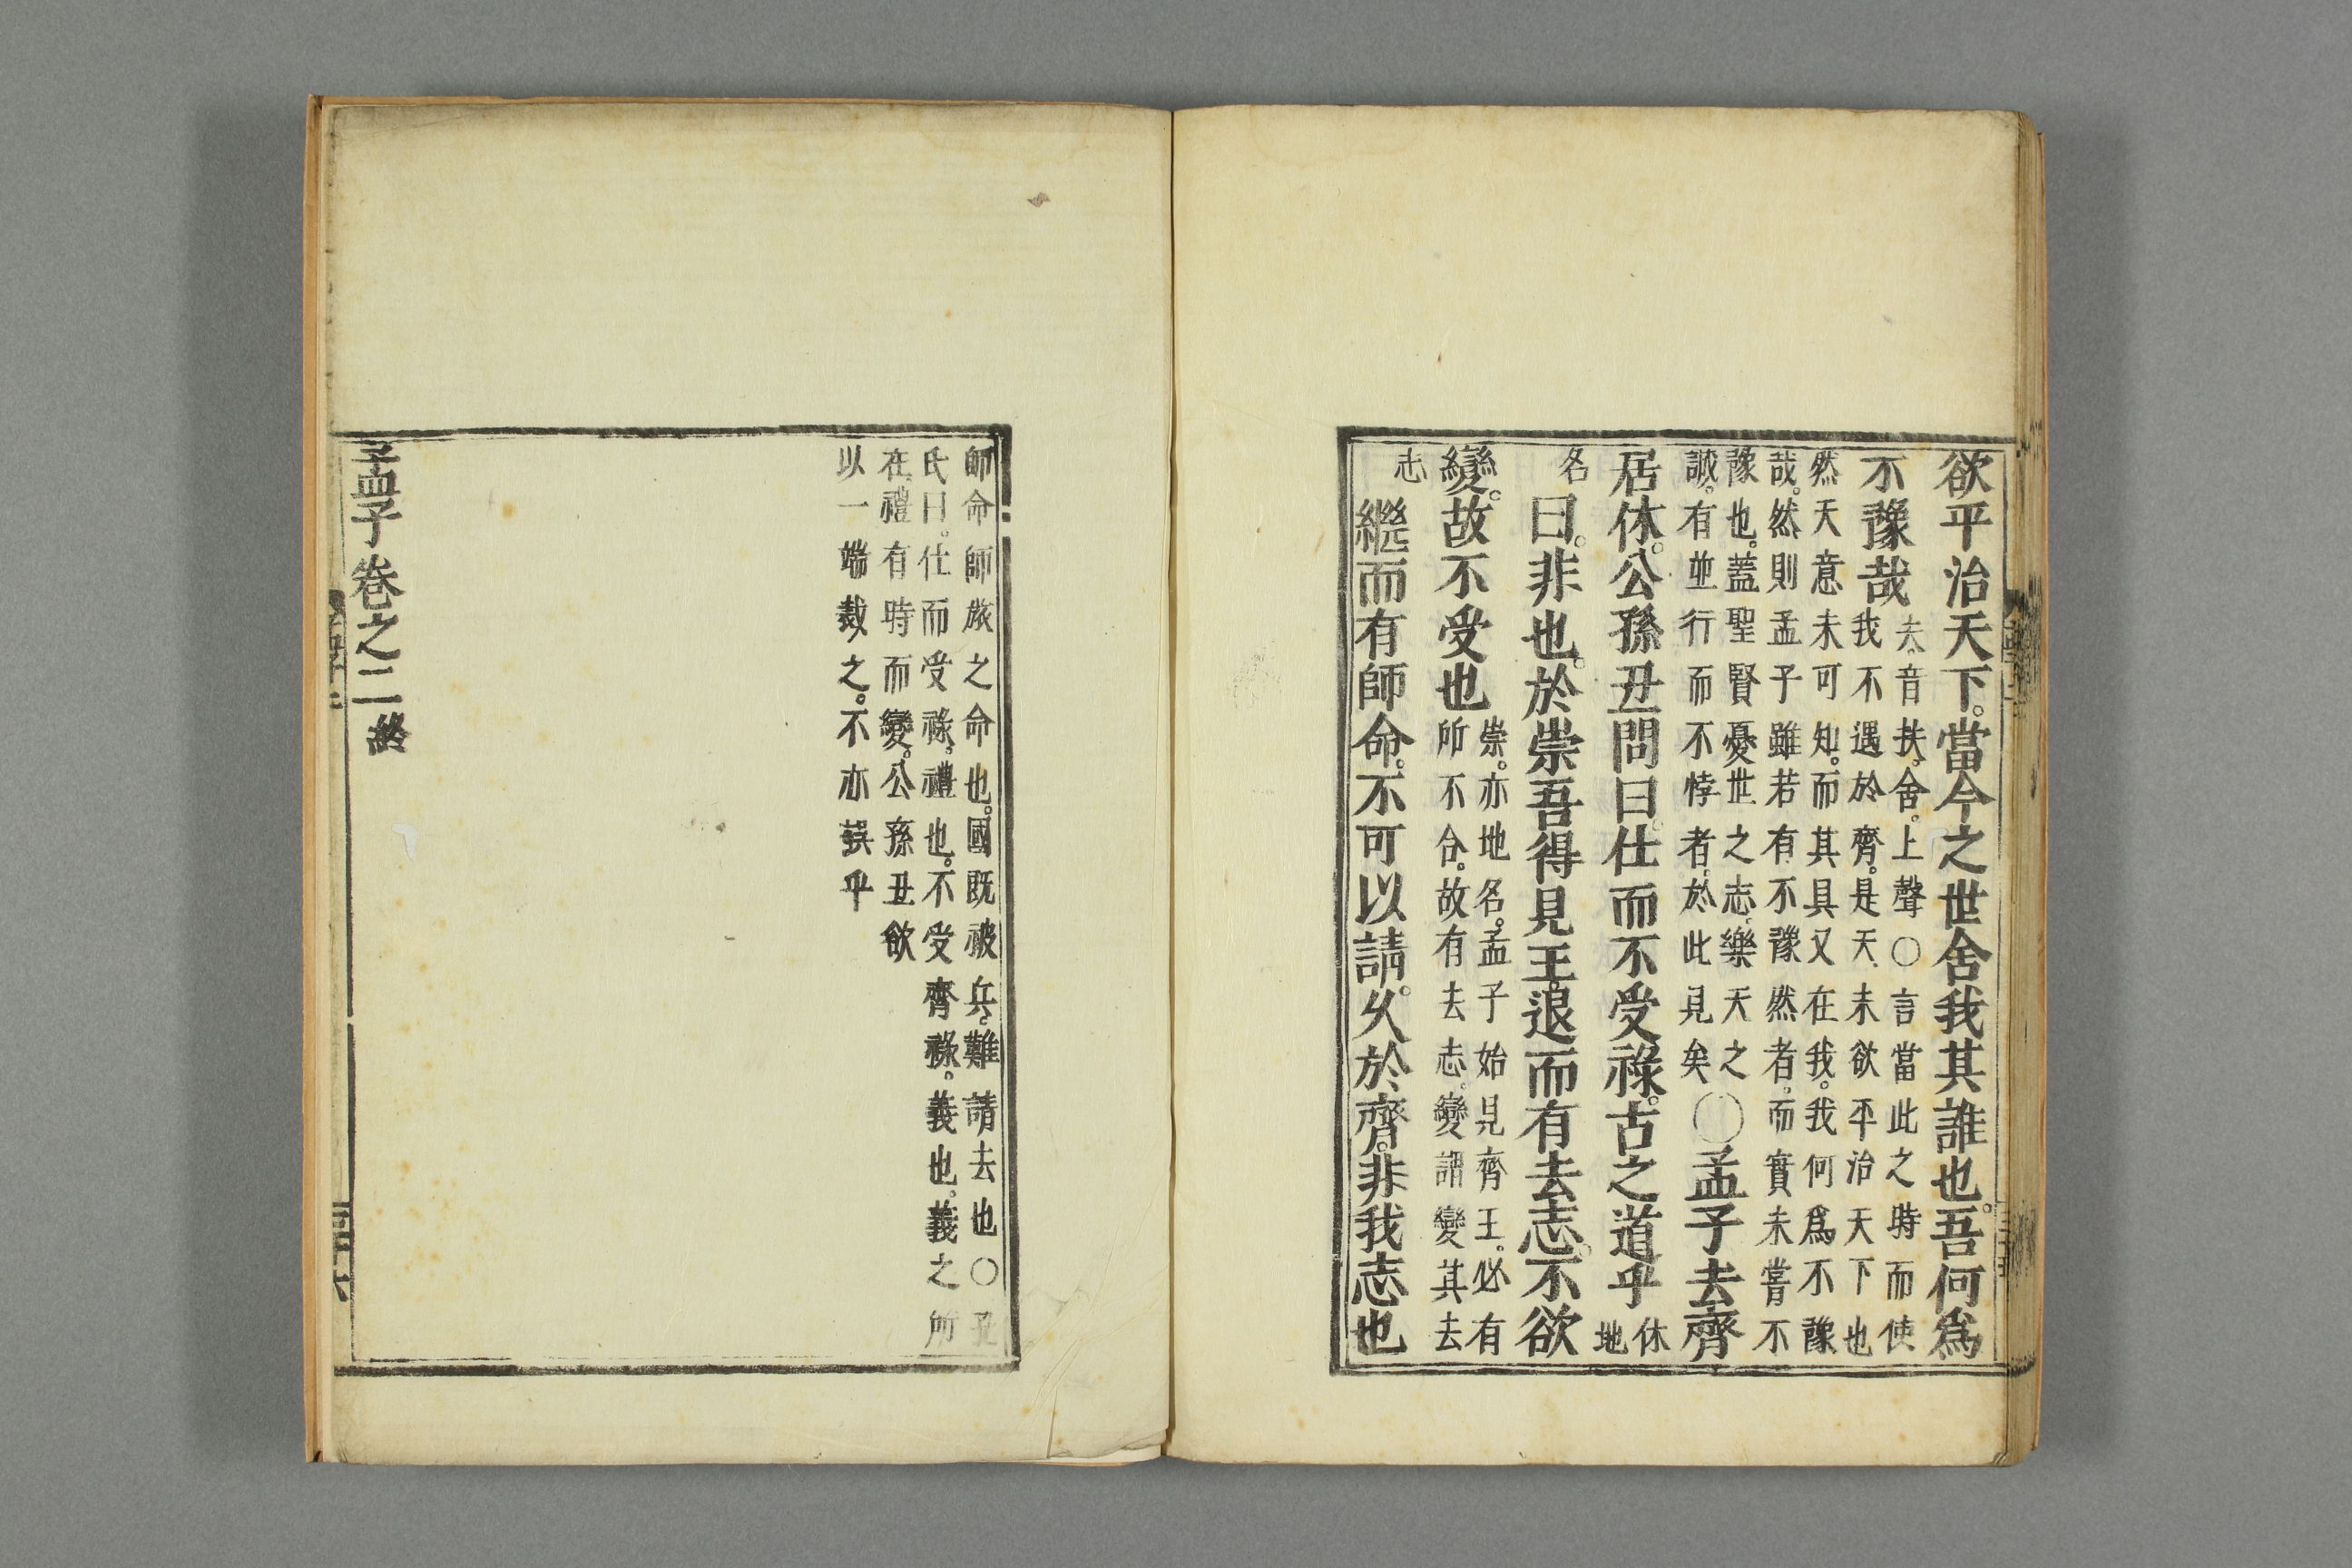 欲平治天下。當今之世舍我其誰也。吾何爲
不豫哉
夫。音扶。舍。上聲○言當此之時而使
我不遇於齊。是天未欲平治天下也
然天意未可知。而其具又在我。我何爲不豫
哉。然則孟子雖若有不豫然者。而實未嘗不
豫也。蓋聖賢憂世之志。樂天之
誠。有並行而不悖者。於此見矣
○孟子去齊
居休。公孫丑問曰。仕而不受祿。古之道乎
休
地
名
曰。非也。於崇吾得見王。退而有去志。不欲
變。故不受也
崇。亦地名。孟子始見齊王。必有
所不合。故有去志。變謂變其去
志
繼而有師命。不可以請。久於齊。非我志也
師命師旅之命也。國既被兵。難請去也○孔
氏曰。仕而受祿。禮也。不受齊祿。義也。義之所
在。禮有時而變。公孫丑欲
以一端裁之。不亦誤乎
孟子卷之二終